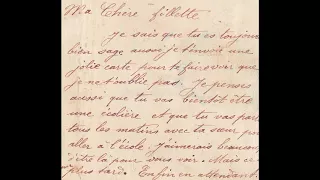 Ma Chère fillette
je sais que tu es toujours
bien sage aussi je t'envoie une
jolie carte pour te faire voir que
je ne t'oublie pas. Je penses
aussi que tu vas bientôt être
une écolière et que tu vas partir
tous les matins avec ta sœur pour
aller à l'école. J'aimerais beaucoup
d'être là pour vous voir. Mais ce
plus tard. Enfin en attendant